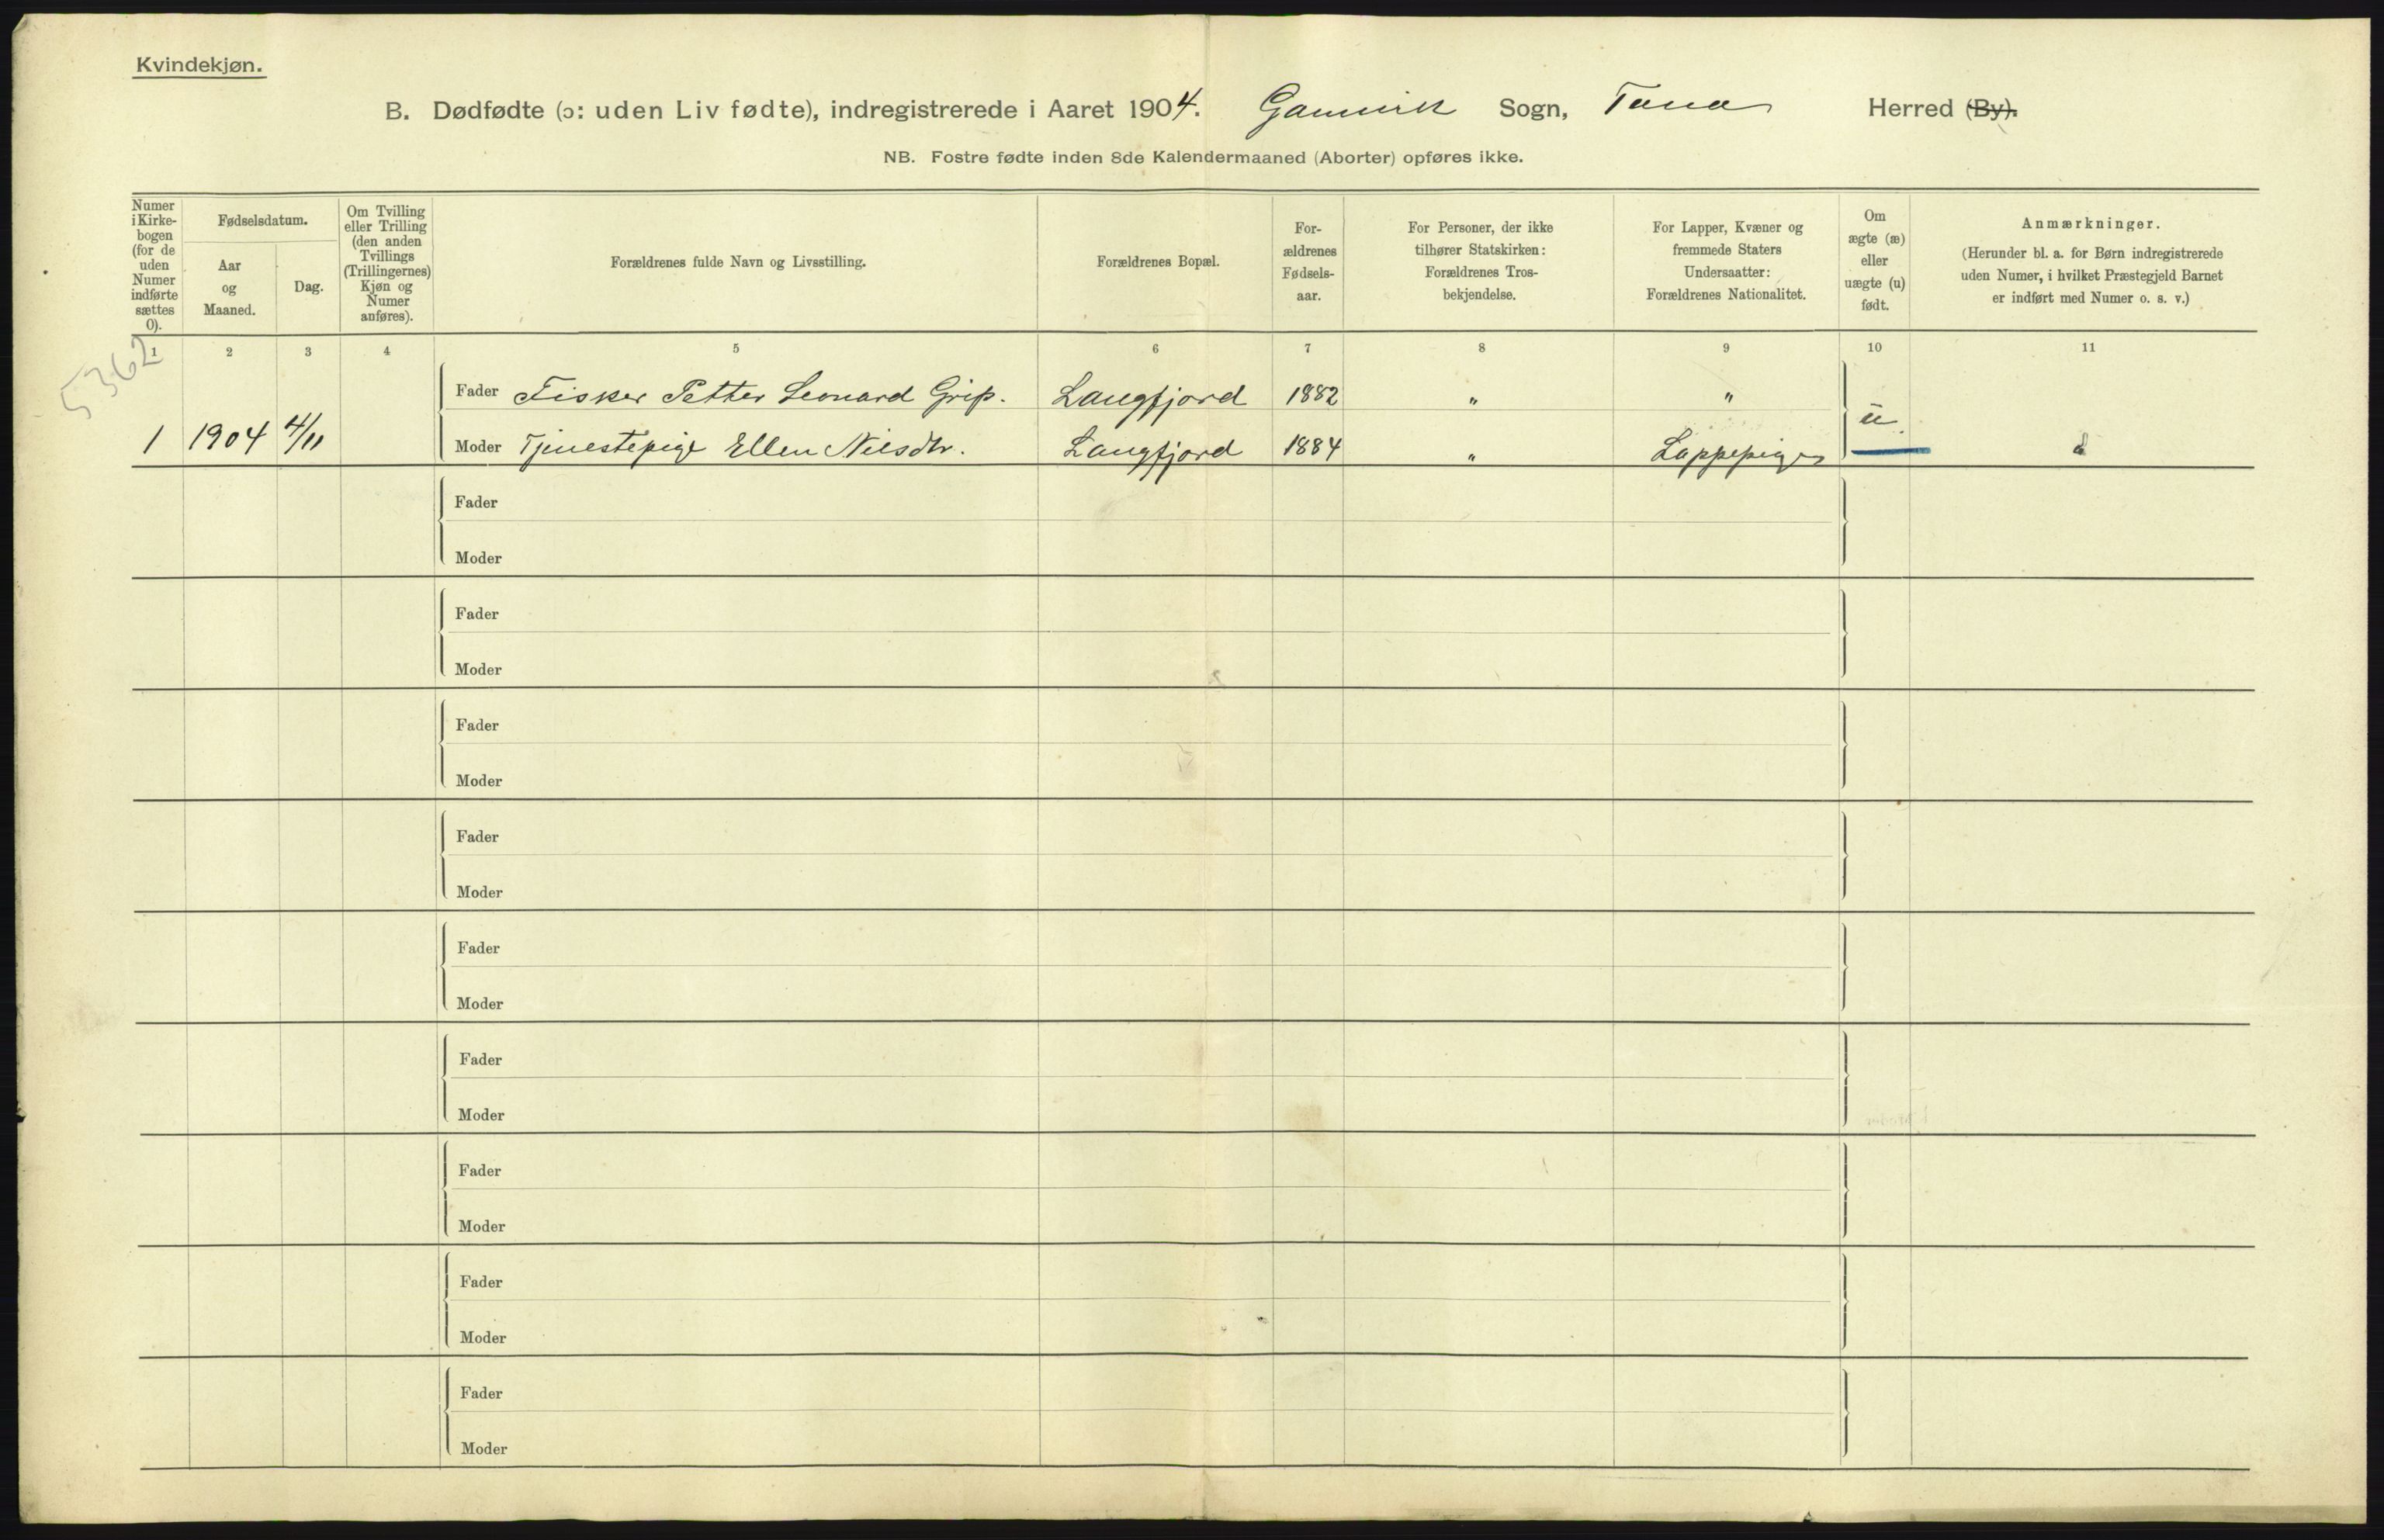 Kvindekjøn.
B. Dødfødte (ɔ: uden Liv fødte), indregistrerede i Aaret 1904. Gamvik Sogn, Tana Herred (By).
NB. Fostre fødte inden 8de Kalendermaaned (Aborter) opføres ikke.
Numer
i Kirke-
bogen
(for de
uden
Numer
indførte
sættes
0).
Fødselsdatum.
Aar
og
Maaned.
Dag.
Om Tvilling
eller Trilling
(den anden
Tvillings
(Trillingernes)
Kjøn og
Numer
anføres).
Forældrenes fulde Navn og Livsstilling.
Forældrenes Bopæl.
For-
ældrenes
Fødsels-
aar.
For Personer, der ikke
tilhører Statskirken:
Forældrenes Tros-
bekjendelse.
For Lapper, Kvæner og
fremmede Staters
Undersaatter:
Forældrenes Nationalitet.
Om
ægte (æ)
eller
uægte (u)
født.
Anmærkninger.
(Herunder bl. a. for Børn indregistrerede
uden Numer, i hvilket Præstegjeld Barnet
er indført med Numer o. s. v.)
5362
1 2 3 4 5 6 7 8 9 10 11
Fader Fisker Petter Leonard Grip. Langfjord 1882 " "
1 1904 4/11 Moder Tjenestepige Ellen Nilsdtr. Langfjord 1884 " Lappepige u.
Fader
Moder
Fader
Moder
Fader
Moder
Fader
Moder
Fader
Moder
Fader
Moder
Fader
Moder
Fader
Moder
Fader
Moder